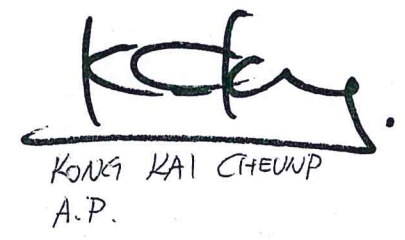 KONG KAI CHEUNP
A.P.